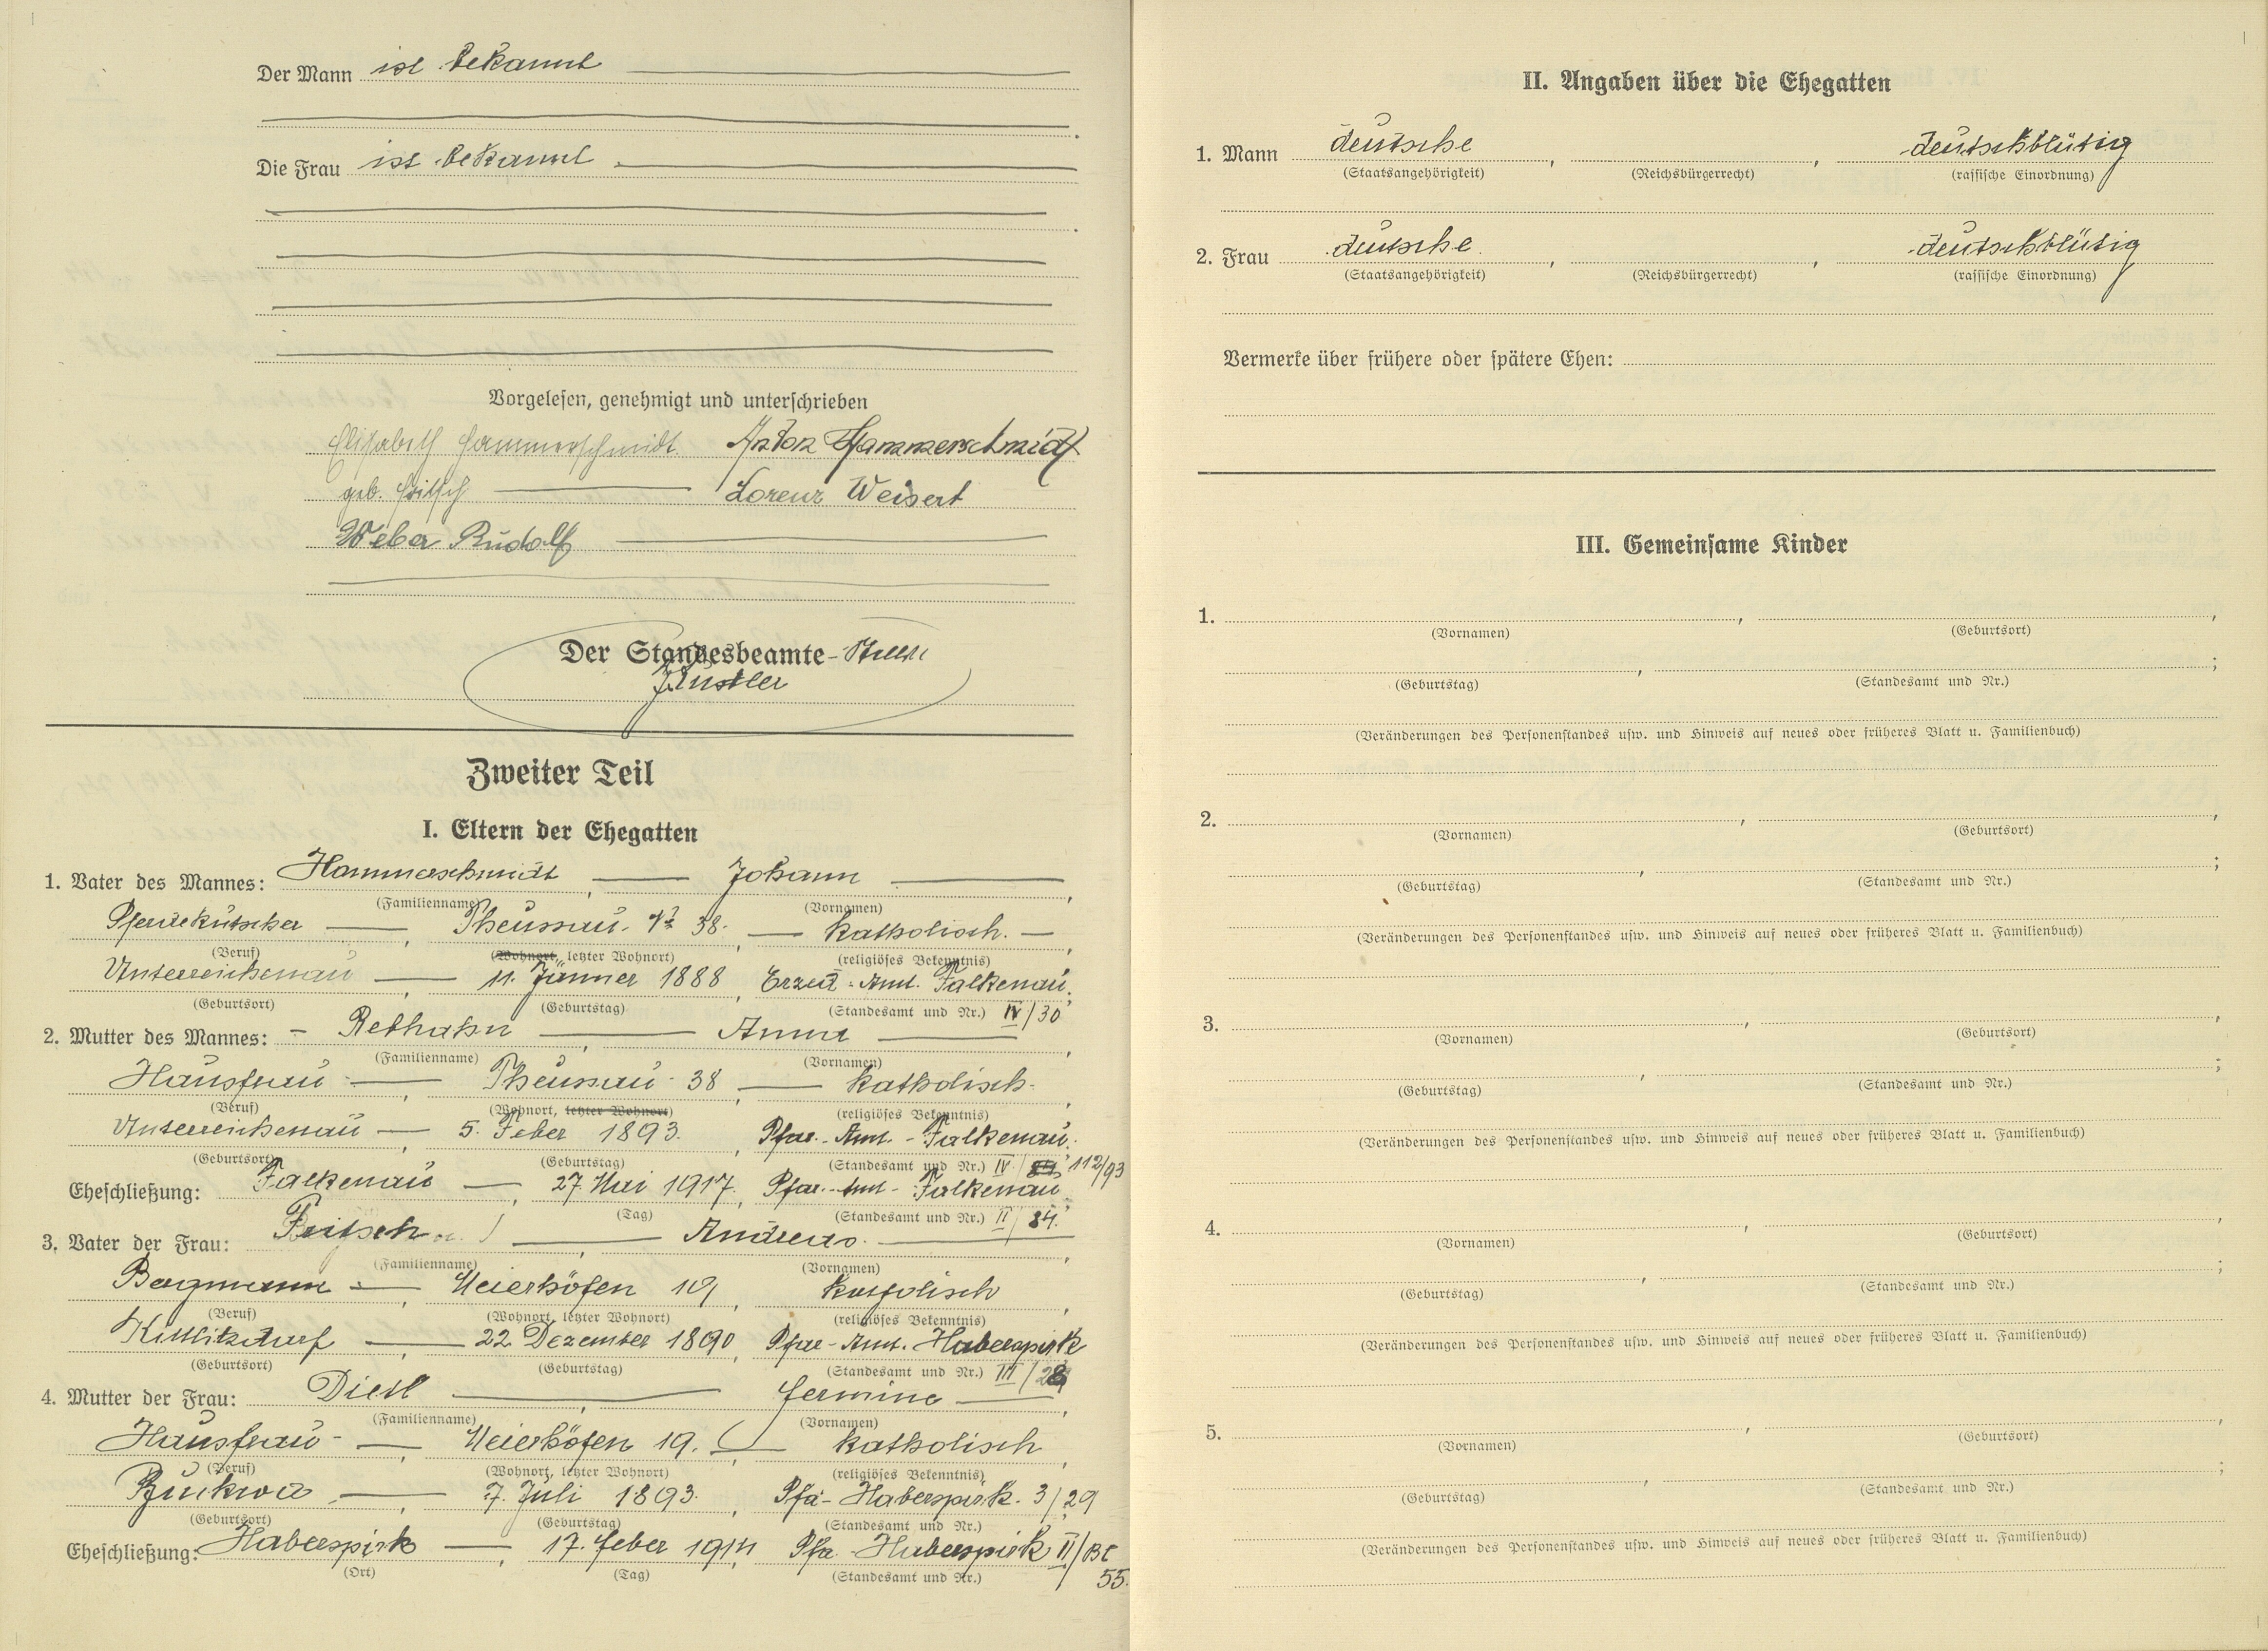 Der Mann ist bekannt
Die Frau ist bekannt
Vorgelesen, genehmigt und unterschrieben
Elisabeth Hammerschmidt Anton Hammerschmidt
geb. Fritsch Lorenz Weisert
Weber Rudolf
Der Standesbeamte
Zweiter Teil
I. Eltern der Ehegatten
1. Vater des Mannes: Hammerschmidt Johann,
(Familienname) (Vornamen)
Pferdekutscher, Theussau № 38., katholisch.,
(Beruf) (Wohnort, letzter Wohnort) (religiöses Bekenntnis)
Unterreichenau, 11. Jänner 1888, Erzd.-Amt. Falkenau;
(Geburtsort) (Geburtstag) (Standesamt und Nr.) IV/30
2. Mutter des Mannes: - Rebhahn, Anna,
(Familienname) (Vornamen)
Hausfrau, Theussau 38, katholisch.,
(Beruf) (Wohnort, letzter Wohnort) (religiöses Bekenntnis)
Unterreichenau, 5. Feber 1893., Pfar.-Amt.-Falkenau;
(Geburtsort) (Geburtstag) (Standesamt und Nr.) IV/ 112/93
Eheschließung: Falkenau, 27. Mai 1917., Pfar.-Amt-Falkenau;
(Tag) (Standesamt und Nr.) II/84.
3. Vater der Frau: Fritsch, Andreas.,
(Familienname) (Vornamen)
Bergmann, Meierhöfen 19, katholisch,
(Beruf) (Wohnort, letzter Wohnort) (religiöses Bekenntnis)
Kittlitzdorf, 22 Dezember 1890, Pfar-Amt. Haberspirk
(Geburtsort) (Geburtstag) (Standesamt und Nr.) III/28
4. Mutter der Frau: Dietl, Hermine,
(Familienname) (Vornamen)
Hausfrau-, Meierhöfen 19., katholisch,
(Beruf) (Wohnort, letzter Wohnort) (religiöses Bekenntnis)
Buckwa, 7. Juli 1893., Pfa-Haberspirk. 3/29
(Geburtsort) (Geburtstag) (Standesamt und Nr.)
Eheschließung: Haberspirk, 17. Feber 1914, Pfa. Haberspirk II/
(Ort) (Tag) (Standesamt und Nr.) 55.
II. Angaben über die Ehegatten
1. Mann deutsche, , deutschblütig
(Staatsangehörigkeit) (Reichsbürgerrecht) (rassische Einordnung)
2. Frau deutsche, , deutschblütig
(Staatsangehörigkeit) (Reichsbürgerrecht) (rassische Einordnung)
Vermerke über frühere oder spätere Ehen:
III. Gemeinsame Kinder
1. , ,
(Vornamen) (Geburtsort)
, ;
(Geburtstag) (Standesamt und Nr.)
(Veränderungen des Personenstandes usw. und Hinweis auf neues oder früheres Blatt u. Familienbuch)
2. , ,
(Vornamen) (Geburtsort)
, ;
(Geburtstag) (Standesamt und Nr.)
(Veränderungen des Personenstandes usw. und Hinweis auf neues oder früheres Blatt u. Familienbuch)
3. , ,
(Vornamen) (Geburtsort)
, ;
(Geburtstag) (Standesamt und Nr.)
(Veränderungen des Personenstandes usw. und Hinweis auf neues oder früheres Blatt u. Familienbuch)
4. , ,
(Vornamen) (Geburtsort)
, ;
(Geburtstag) (Standesamt und Nr.)
(Veränderungen des Personenstandes usw. und Hinweis auf neues oder früheres Blatt u. Familienbuch)
5. , ,
(Vornamen) (Geburtsort)
, ;
(Geburtstag) (Standesamt und Nr.)
(Veränderungen des Personenstandes usw. und Hinweis auf neues oder früheres Blatt u. Familienbuch)